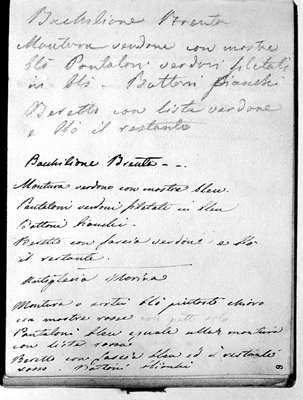 Bachilione Brenta
Montura verdone con mostre
blò Pantaloni verdoni filetati
in blò. Bottoni bianchi
Beretto con lista verdone
e blò il restante
Bachilione Brenta - - .
Montura verdone con mostre bleu.
Pantaloni verdoni filetati in bleu
Bottoni bianchi.
Beretto con fascia verdone e blò
il restante.
Artiglieria
Montura blò piutosto chiaro
con mostre rosse
Pantaloni bleu eguale alla montura
con lista rossa
Beretto con fascia bleu ed il restante
rosso. Bottoni
9